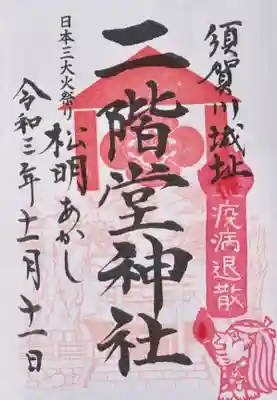 須賀川城址
疫病退散
二階堂神社
日本三大火祭り
松明あかし
令和三年十一月十一日